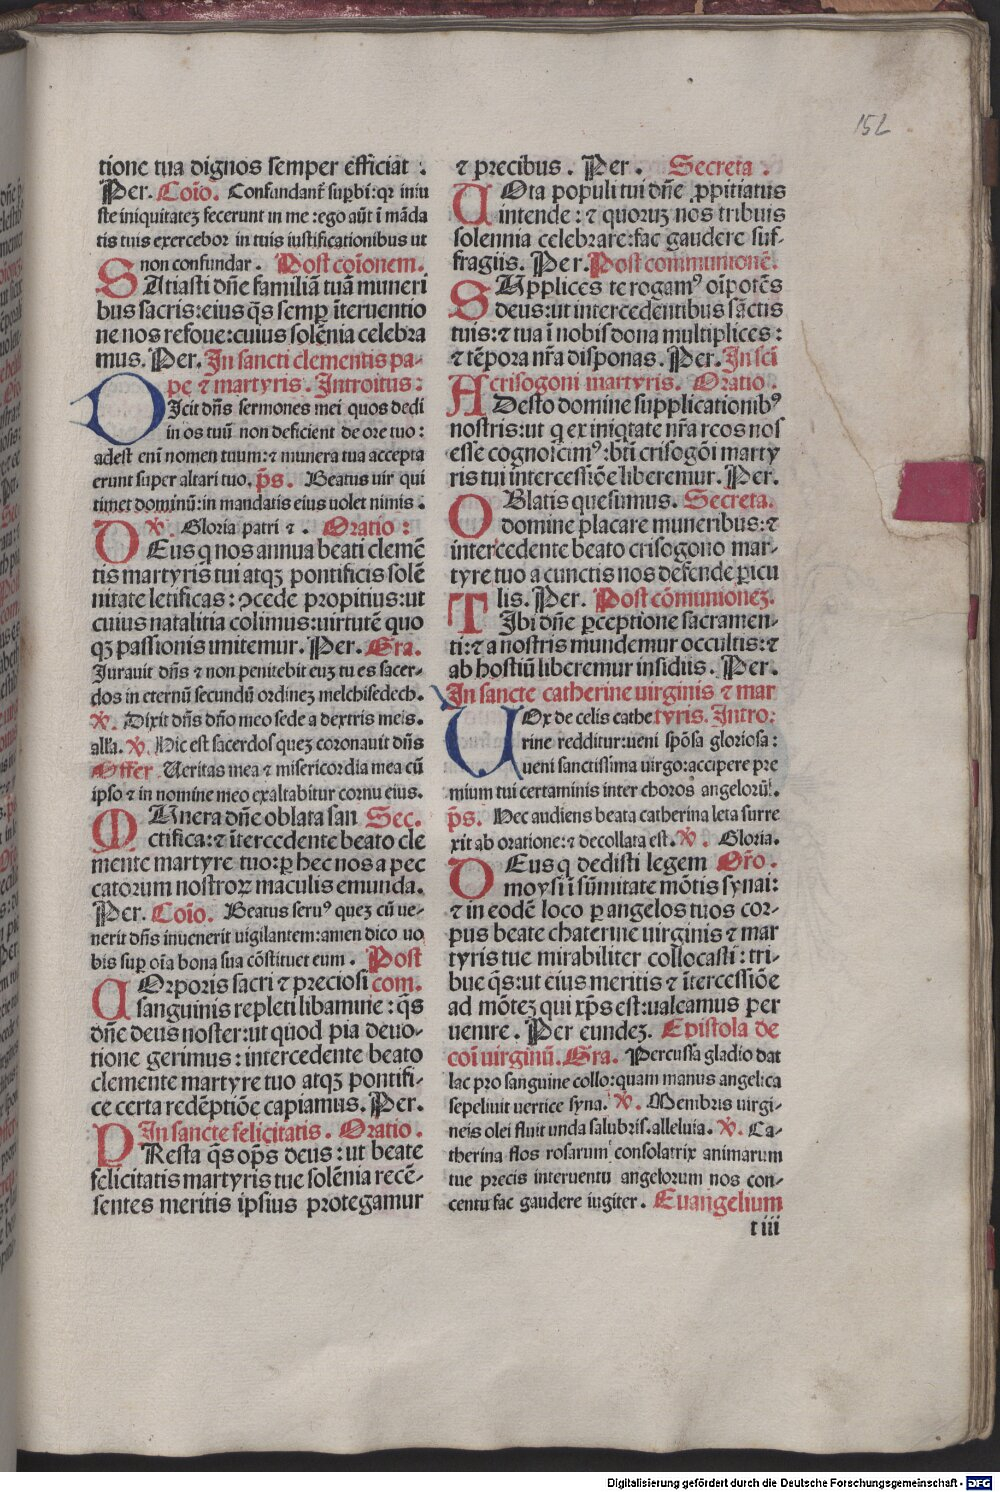 152
tione tua dignos semper efficiat :
Per. Coĩo. Confundant᷑ supbi:qr iniu
ste iniquitateꝫ fecerunt in me :ego aũt ĩ mãda
tis tuis exercebor in tuis iustificationibus ut
non confundar . Post coĩonem.
SAtiasti dñe familiã tuã muneri
bus sacris:eius q̃s semꝑ ĩteruentio
ne nos refoue:cuius solẽnia celebra
mus. Per. In sancti clementis pa-
pe ⁊ martyris. Introitus:
DIcit dñs sermones mei quos dedi
in os tuũ non deficient de ore tuo :
adest enĩ nomen tuum:⁊ munera tua accepta
erunt super altari tuo. p̃s. Beatus uir qui
timet dominũ:in mandatis eius uolet nimis .
℣. Gloria patri ⁊ . Oratio :
DEus q nos annua beati clemẽ
tis martyris tui atqꝫ pontificis solẽ
nitate letificas : ↄcede propitius:ut
cuius natalitia colimus:uirtutẽ quo
qꝫ passionis imitemur. Per. Gra.
Jurauit dñs ⁊ non penitebit euꝫ tu es sacer-
dos in eternũ secundũ ordineꝫ melchisedech.
℣. Dixit dñs dño meo sede a dextris meis.
alľa. ℣. Hic est sacerdos queꝫ coronauit dñs
Offer Ueritas mea ⁊ misericordia mea cũ
ipso ⁊ in nomine meo exaltabitur cornu eius.
MUnera dñe oblata san Sec.
ctifica:⁊ ĩtercedente beato cle
mente martyre tuo:ꝑ hec nos a pec
catorum nostroꝝ maculis emunda.
Per. Coĩo. Beatus seruꝰ queꝫ cũ ue-
nerit dñs inuenerit uigilantem:amen dico uo
bis suꝑ oĩa bona sua cõstituet eum . Post
COrporis sacri ⁊ preciosi com.
sanguinis repleti libamine : q̃s
dñe deus noster:ut quod pia deuo-
tione gerimus : intercedente beato
clemente martyre tuo atqꝫ pontifi-
ce certa redẽptiõe capiamus. Per.
In sancte felicitatis. Oratio .
PResta q̃s op̃s deus : ut beate
felicitatis martyris tue solẽnia recẽ-
sentes meritis ipsius protegamur
⁊ precibus . Per . Secreta .
UOta populi tui dñe ꝓpitiatus
intende : ⁊ quoruꝫ nos tribuis
solennia celebrare:fac gaudere suf-
fragiis. Per. Post communionẽ.
SUpplices te rogamꝰ oĩpotẽs
deus:ut intercedentibus sãctis
tuis:⁊ tua ĩ nobis dona multiplices :
⁊ tẽpora nr̃a disponas. Per. In scĩ
crisogoni martyris. Oratio .
ADesto domine supplicationibꝰ
nostris:ut q ex iniqtate nr̃a reos nos
esse cognoscimꝰ:bt̃i crisogõi marty
ris tui intercessiõe liberemur. Per.
OBlatis quesumus. Secreta.
domine placare muneribus:⁊
intercedente beato crisogono mar-
tyre tuo a cunctis nos defende ꝑicu
lis. Per. Post cõmunioneꝫ.
TIbi dñe ꝑceptione sacramen-
ti:⁊ a nostris mundemur occultis:⁊
ab hostiũ liberemur insidiis. Per.
In sancte catherine uirginis ⁊ mar
UOx de celis cathe tyris. Intro:
rine redditur:ueni spõsa gloriosa :
ueni sanctissima uirgo:accipere pre
mium tui certaminis inter choros angelorũ.
p̃s. Nec audiens beata catherina leta surre
xit ab oratione:⁊ decollata est. ℣. Gloria.
DEus q dedisti legem Or̃o.
moysi ĩ sũmitate mõtis synai:
⁊ in eodẽ loco ꝑ angelos tuos cor-
pus beate chaterine uirginis ⁊ mar
tyris tue mirabiliter collocasti : tri-
bue q̃s:ut eius meritis ⁊ ĩtercessiõe
ad mõteꝫ qui xp̃s est:ualeamus per
uenire . Per eundeꝫ. Epistola de
coĩ uirginũ. Gra. Percussa gladio dat
lac pro sanguine collo:quam manus angelica
sepeliuit uertice syna. ℣. Membris uirgi-
neis olei fluit unda salubris.alleluia. ℣. Ca-
therina flos rosarum consolatrix animarum
tue precis interuentu angelorum nos con-
centu fac gaudere iugiter . Euangelium
t iii
Digitalisierung gefördert durch die Deutsche Forschungsgemeinschaft - DFG